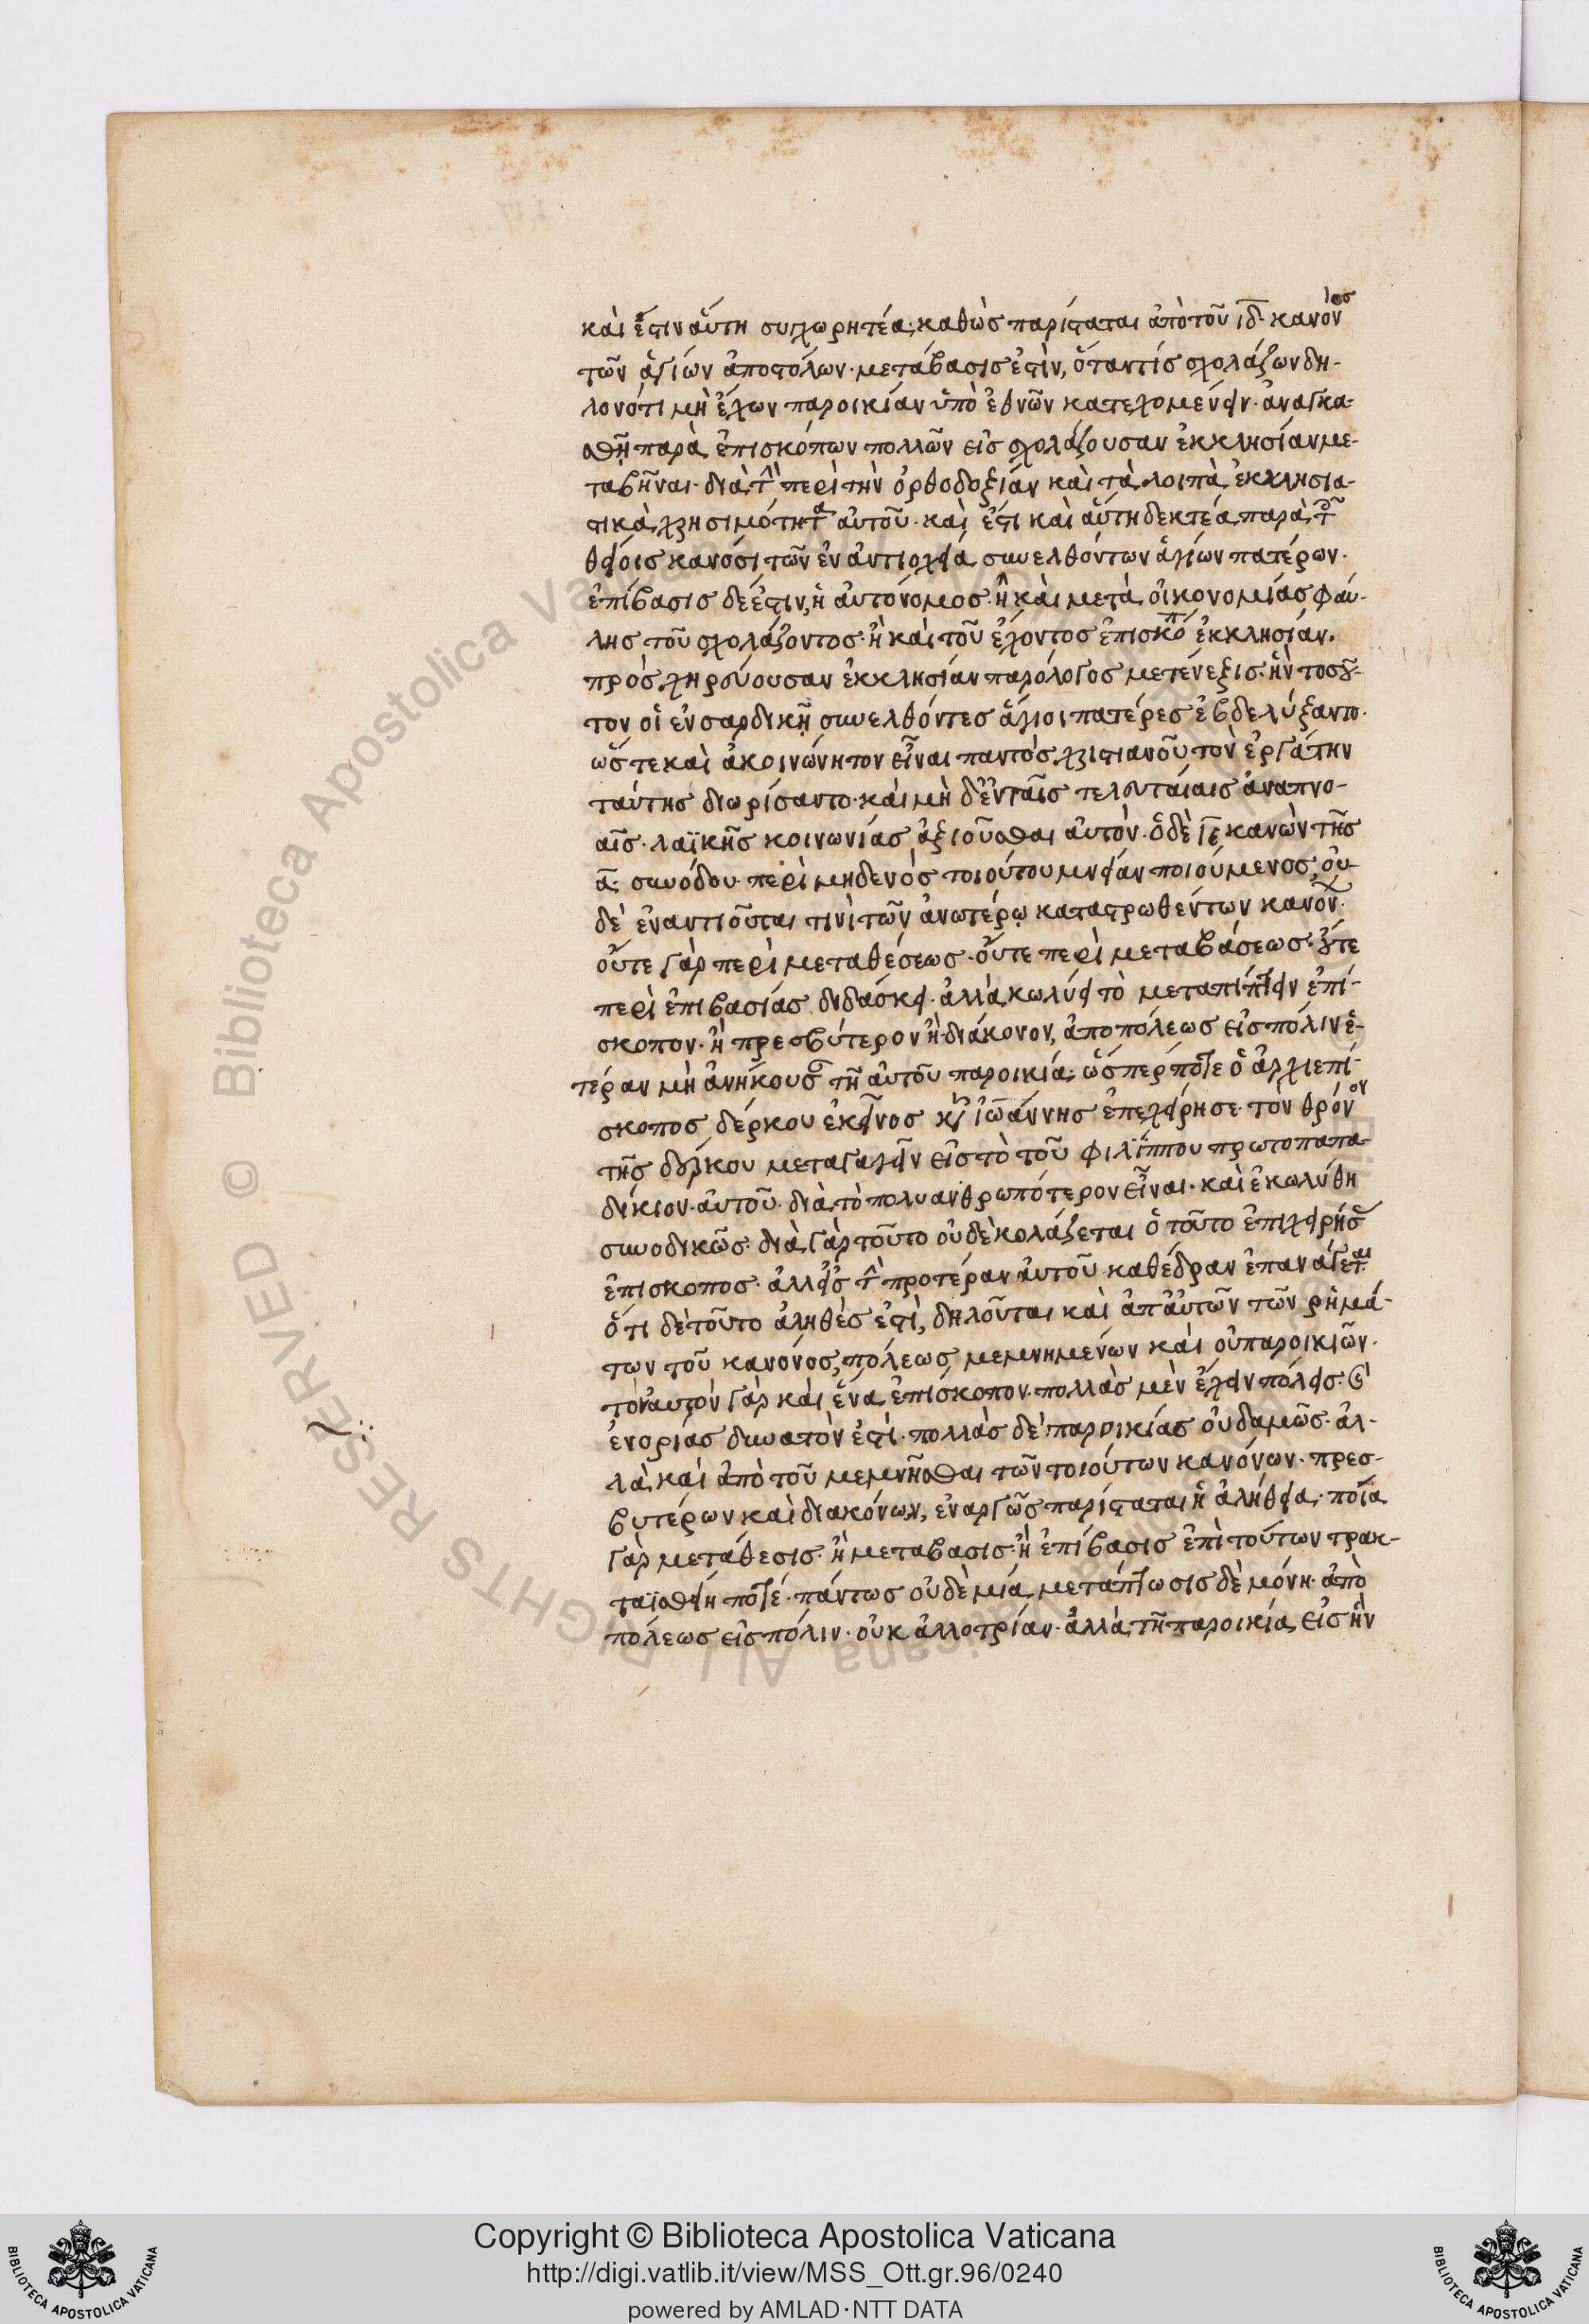 καὶ ἔστιν αὕτη συγχωρητέα, καθὼς παρίσταται ἀπὸ τοῦ ιδ· κανόνος
τῶν ἁγίων ἀποστόλων· μετάβασις ἐστὶν, ὅταν τίς σχολάζων δη-
λονότι μὴ ἔχων παροικίαν ὑπὸ ἐθνῶν κατεχομένην· ἀναγκα-
σθῇ παρὰ ἐπισκόπων πολλῶν εἰς σχολάζουσαν ἐκκλησίαν με-
ταβῆναι· διὰ τὴν περὶ τὴν ὀρθοδοξίαν καὶ τὰ λοιπὰ ἐκκλησια-
στικὰ χρησιμότητα αὐτοῦ· καὶ ἔστι καὶ αὕτη δεκτέα παρὰ τοῖς
θείοις κανόσι τῶν ἐν ἀντιοχεία συνελθόντων ἁγίων πατέρων·
ἐπίβασις δέ ἐστιν, ἡ αὐτόνομος· ἢ καὶ μετὰ οἰκονομίας φαύ-
λης τοῦ σχολάζοντος· ἢ καὶ τοῦ ἔχοντος ἐπισκόπου ἐκκλησίαν.
πρὸς χηρεύουσαν ἐκκλησίαν παράλογος μετένεξις· ἣν τοσοῦ-
τον οἱ ἐν σαρδικῇ συνελθόντες ἅγιοι πατέρες ἐβδελύξαντο·
ὥστε καὶ ἀκοινώνητον εἶναι παντὸς χριστιανοῦ τὸν ἐργάτην
ταύτης διωρίσαντο· καὶ μὴ δ' ἐν ταῖς τελευταίαις ἀναπνο-
αῖς· λαϊκῆς κοινωνίας ἀξιοῦσθαι αὐτόν· ὁ δὲ ιε κανὼν τῆς
α συνόδου· περὶ μηδενὸς τοιούτου μνείαν ποιούμενος, οὐ-
δὲ ἐναντιοῦται τινὶ τῶν ἀνωτέρω καταστρωθέντων κανόνων·
οὔτε γὰρ περὶ μεταθέσεως· οὔτε περὶ μεταβάσεως· οὔτε
περὶ ἐπιβασίας διδάσκει· ἀλλὰ κωλύει τὸ μεταπίπτειν ἐπί-
σκοπον· ἢ πρεσβύτερον ἢ διάκονον, ἀπὸ πόλεως εἰς πόλιν ἑ-
τέραν μὴ ἀνήκουσαν τῇ αὐτοῦ παροικία· ὥσπερ ποτε ὁ ἀρχιεπί-
σκοπος δέρκου ἐκεῖνος κὺρ ἰωάννης ἐπεχείρησε τὸν θρόνον
τῆς δέρκου μεταγαγεῖν εἰς τὸ τοῦ φιλίππου πρωτοπαπα-
δίκιον· αὐτοῦ· διὰ τὸ πολυανθρωπότερον εἶναι· καὶ ἐκωλύθη
συνοδικῶς· διὰ γὰρ τοῦτο οὐδὲ κολάζεται ὁ τοῦτο ἐπιχειρήσας
ἐπίσκοπος· ἀλλ' εἰς τὴν προτέραν αὐτοῦ καθέδραν ἐπανάγεται
ὅτι δὲ τοῦτο ἀληθές ἐστὶ, δηλοῦται καὶ ἀπ' αὐτῶν τῶν ῥημά-
των τοῦ κανόνος, πόλεως μεμνημένων καὶ οὐ παροικιῶν·
τὸν αὐτὸν γὰρ καὶ ἕνα ἐπίσκοπον πολλὰς μὲν ἔχειν πόλεις· καὶ
ἐνορίας δυνατὸν ἐστὶ· πολλὰς δὲ παροικίας οὐδαμῶς· ἀλ-
λὰ καὶ ἀπὸ τοῦ μεμνῆσθαι τῶν τοιούτων κανόνων· πρεσ-
βυτέρων καὶ διακόνων, ἐναργῶς παρίσταται ἡ ἀλήθεια· ποία
γὰρ μετάθεσις· ἢ μετάβασις· ἢ ἐπίβασις ἐπὶ τούτων τρακ-
ταϊσθείη ποτέ· πάντως οὐδὲ μία, μετάπτωσις δὲ μόνη· ἀπὸ
πόλεως εἰς πόλιν· οὐκ ἀλλοτρίαν· ἀλλὰ τῇ παροικία εἰς ἣν
Copyright © Biblioteca Apostolica Vaticana
http://digi.vatlib.it/view/MSS_Ott.gr.96/0240
powered by AMLAD·NTT DATA